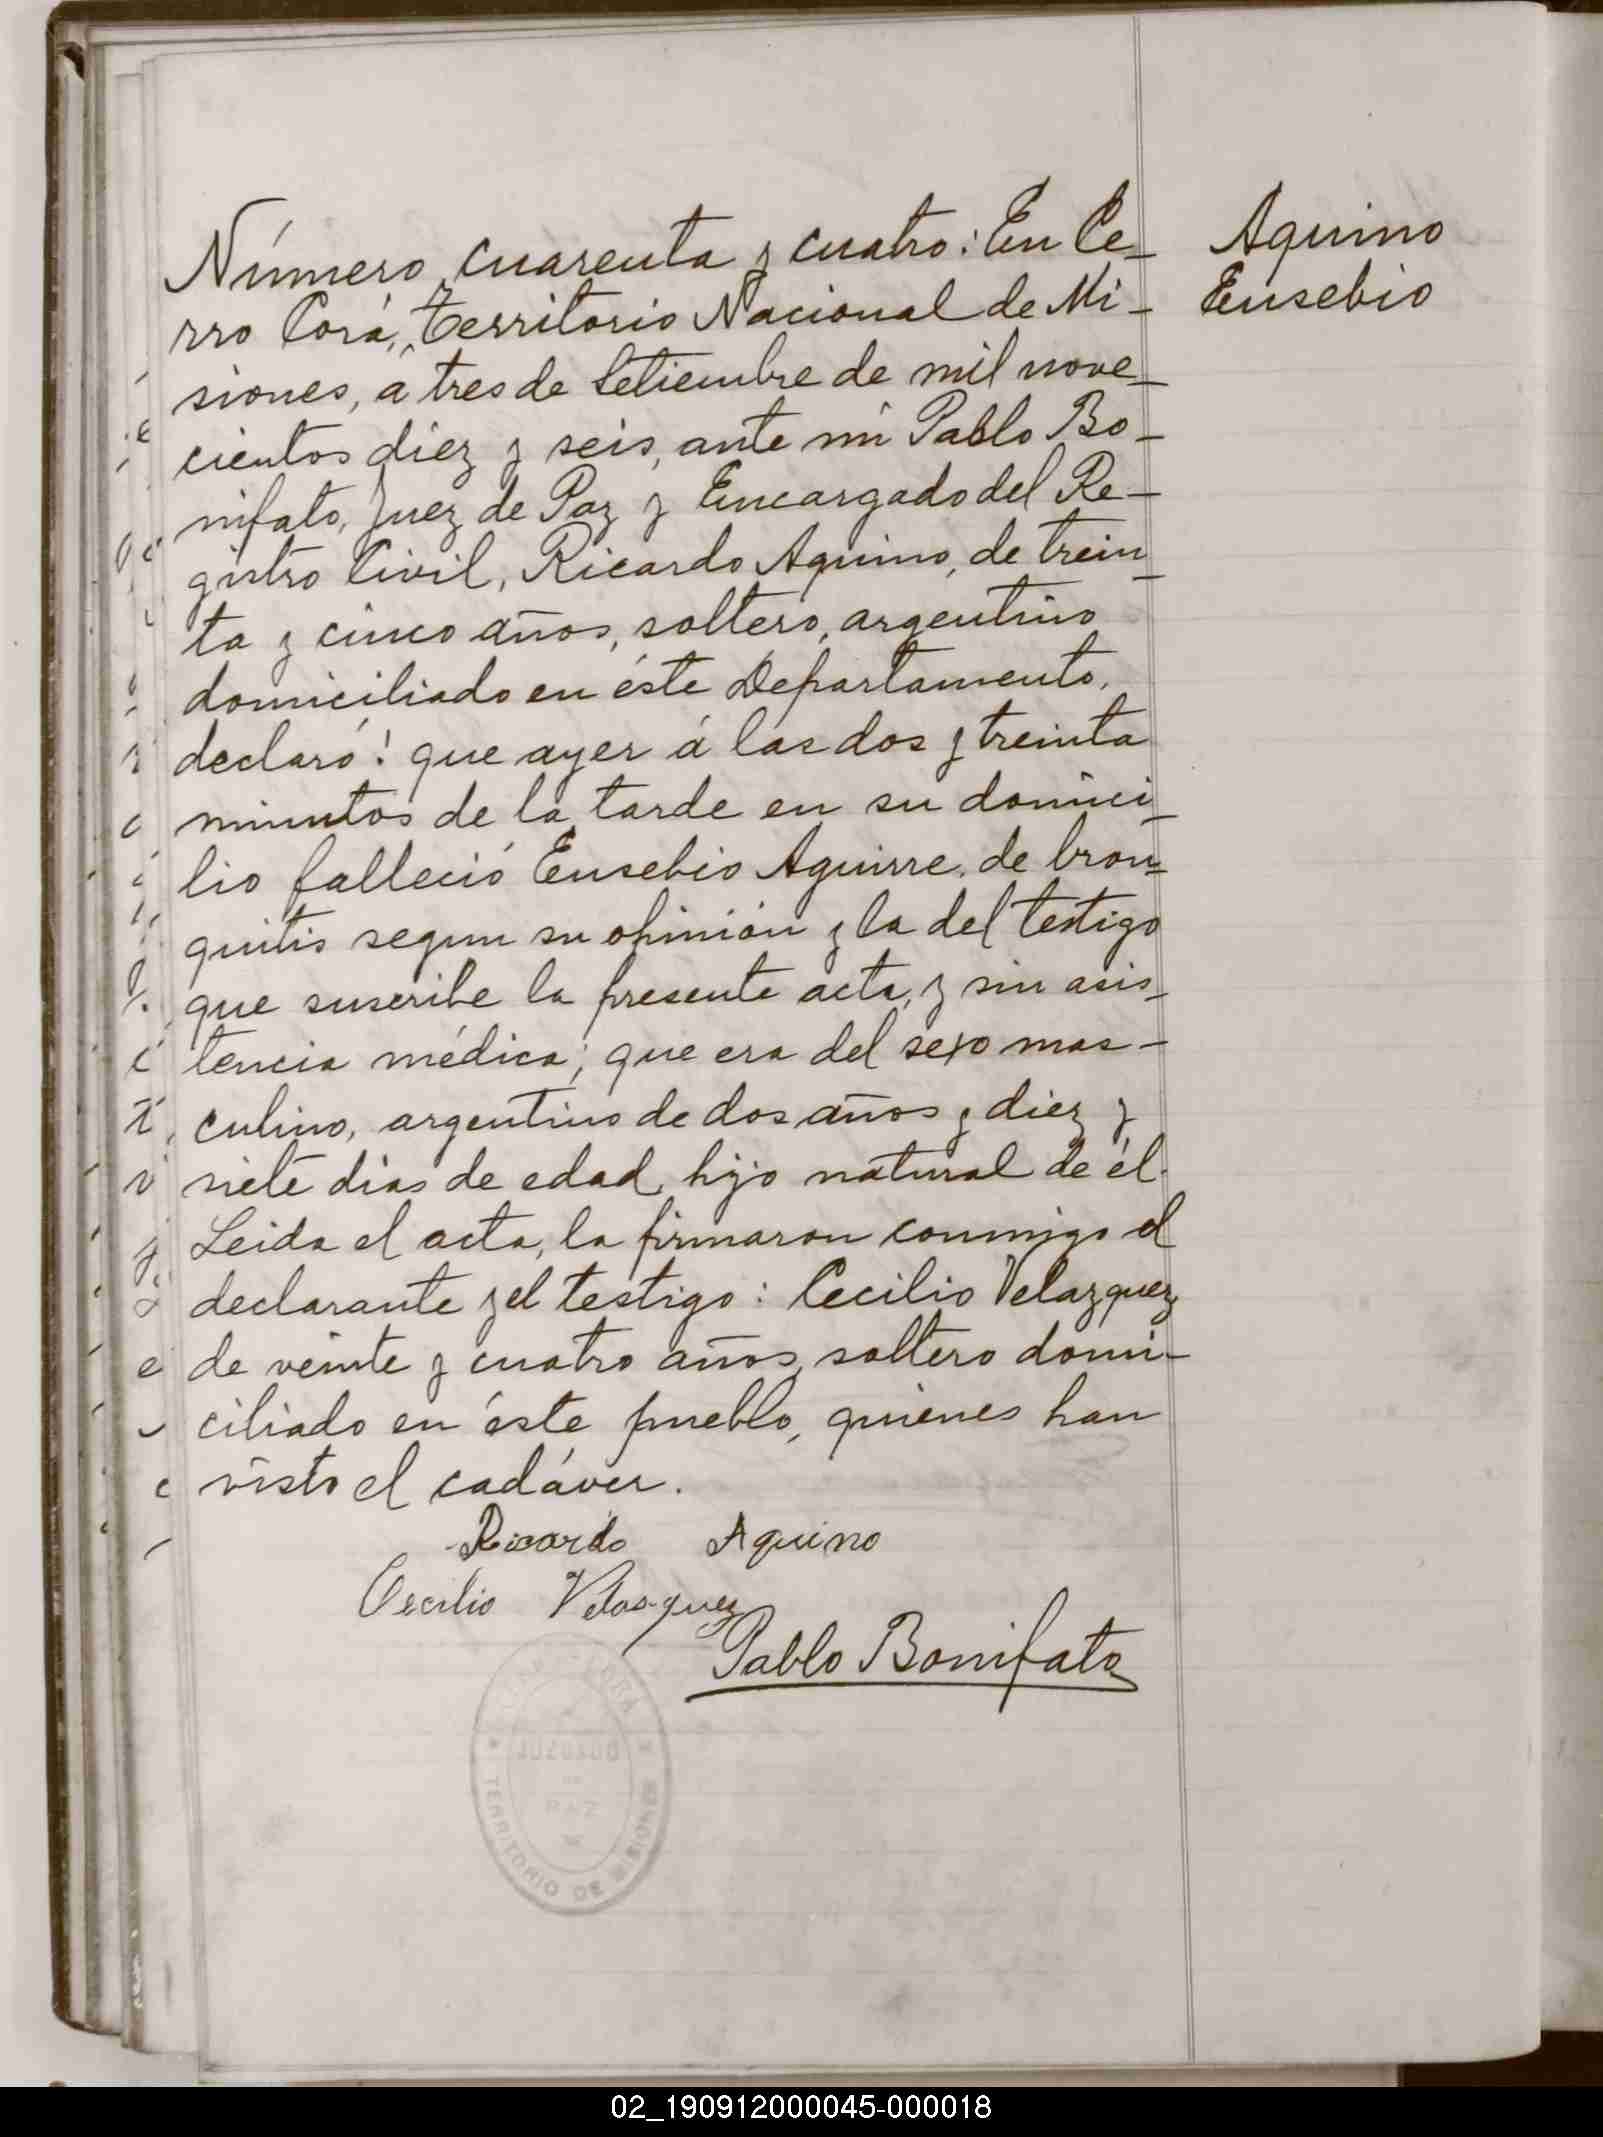 Número cuarenta y cuatro: En Ce-
rro Corá, Territorio Nacional de Mi-
siones, a tres de Setiembre de mil nove-
cientos diez y seis, ante mi Pablo Bo-
nifato, Juez de Paz y Encargado del Re-
gistro Civil, Ricardo Aquino, de trein-
ta y cinco años, soltero, argentino
domiciliado en éste Departamento,
declaró: que ayer á las dos y treinta
minutos de la tarde en su domici-
lio falleció Eusebio Aguirre, de bron-
quitis segun su opinión y la del testigo
que suscribe la presente acta, y sin asis-
tencia médica; que era del sexo mas-
culino, argentino de dos años y diez y
siete dias de edad, hijo natural de él.
Leida el acta, la firmaron conmigo el
declarante y el testigo: Cecilio Velazquez
de veinte y cuatro años, soltero domi-
ciliado en éste pueblo, quienes han
visto el cadáver.
Aquino
Eusebio
Ricardo Aquino
Cecilio Velasquez
Pablo Bonifato
CORÁ
JUZGADO
DE
PAZ
TERRITORIO DE MISIONES
02_190912000045-000018